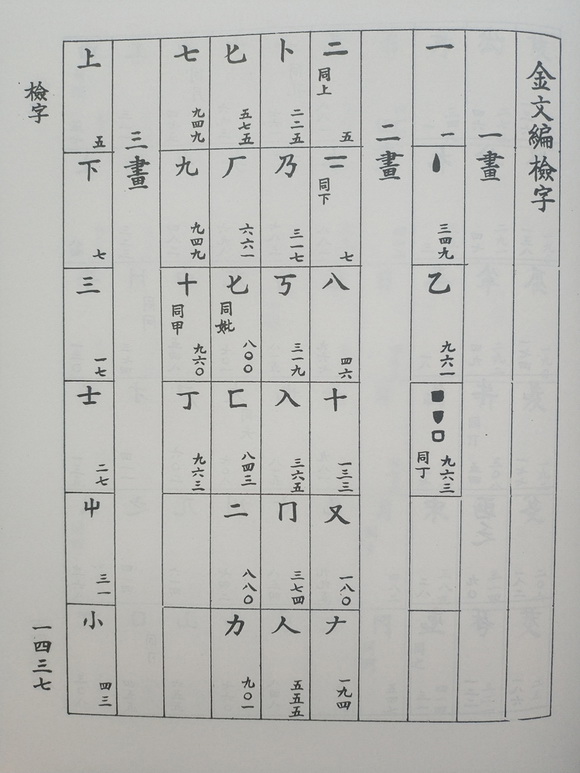 金文編檢字
一畫
一 一
三四九
乙 九六一
同丁 九六三
二畫
二 同上 五
同下 七
八 四六
十 一三三
又 一八〇
ナ 一九四
卜 二二五
乃 三一七
丂 三一九
入 三六五
冂 三七四
人 五五五
匕 五七五
厂 六六一
匕 同妣 八〇〇
匚 八四三
二 八八〇
力 九〇一
七 九四九
九 九四九
十 同甲 九六〇
丁 九六三
三畫
上 五
下 七
三 一七
士 二七
屮 三一
小 四三
檢字
一四三七